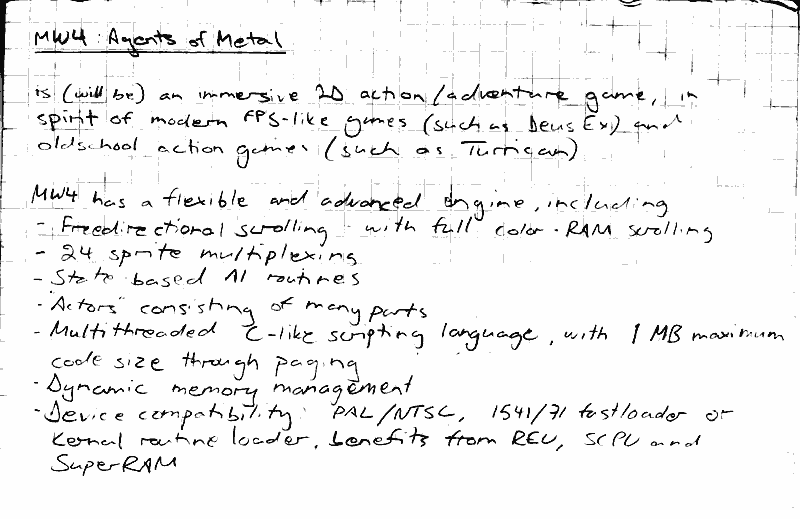 MW4: Agents of Metal
is (will be) an immersive 2D action/adventure game, in
spirit of modern FPS-like games (such as Deus Ex) and
oldschool action games (such as Turrican)
MW4 has a flexible and advanced engine, including
- Freedirectional scrolling - with full color-RAM scrolling
- 24 sprite multiplexing
- State based AI routines
- "Actors" consisting of many parts
- Multithreaded C-like scripting language, with 1 MB maximum
code size through paging
- Dynamic memory management
- Device compatibility: PAL/NTSC, 1541/71 fastloader or
Kernal routine loader, benefits from REU, SCPU and
SuperRAM